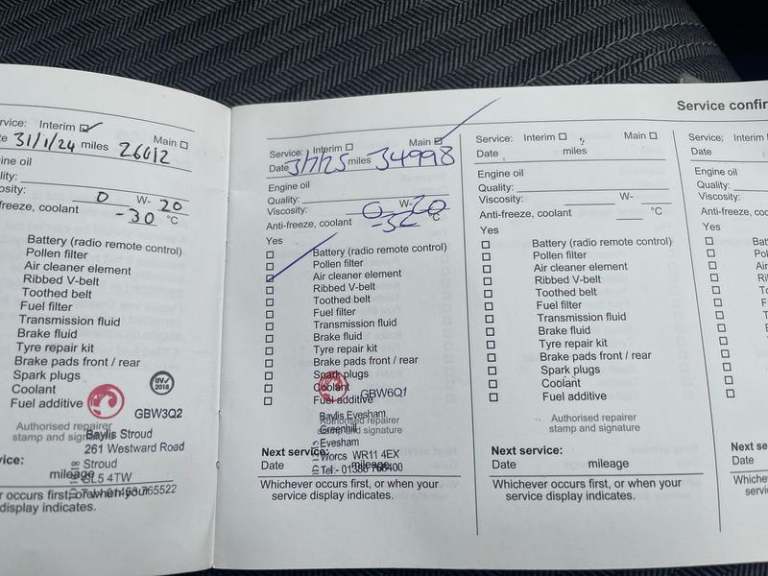 Service confir
rvice: Interim
Main
te 31/1/24 miles 26012
ine oil
lity:
osity: 0 W- 20
freeze, coolant -30 °C
Battery (radio remote control)
Pollen filter
Air cleaner element
Ribbed V-belt
Toothed belt
Fuel filter
Transmission fluid
Brake fluid
Tyre repair kit
Brake pads front / rear
Spark plugs
Coolant
Fuel additive
GBW3Q2
Authorised repairer
stamp and signature
Baylis Stroud
261 Westward Road
Stroud
GL5 4TW
vice:
mileage
r occurs first, or when your
display indicates.
Service: Interim Main
Date 3/7/25 miles 34998
Engine oil
Quality:
Viscosity: 0 W- 20
Anti-freeze, coolant °C
Yes
Battery (radio remote control)
Pollen filter
Air cleaner element
Ribbed V-belt
Toothed belt
Fuel filter
Transmission fluid
Brake fluid
Tyre repair kit
Brake pads front / rear
Spark plugs
Coolant
Fuel additive
GBW6Q1
Authorised repairer
stamp and signature
Baylis Evesham
Greenhill
Evesham
Worcs WR11 4EX
Next service:
Date mileage
Whichever occurs first, or when your
service display indicates.
Service: Interim Main
Date miles
Engine oil
Quality:
Viscosity: W-
Anti-freeze, coolant °C
Yes
Battery (radio remote control)
Pollen filter
Air cleaner element
Ribbed V-belt
Toothed belt
Fuel filter
Transmission fluid
Brake fluid
Tyre repair kit
Brake pads front / rear
Spark plugs
Coolant
Fuel additive
Authorised repairer
stamp and signature
Next service:
Date mileage
Whichever occurs first, or when your
service display indicates.
Service: Interim
Date
Engine oil
Quality:
Viscosity:
Anti-freeze, coo
Yes
Next se
Date
Whiche
servi